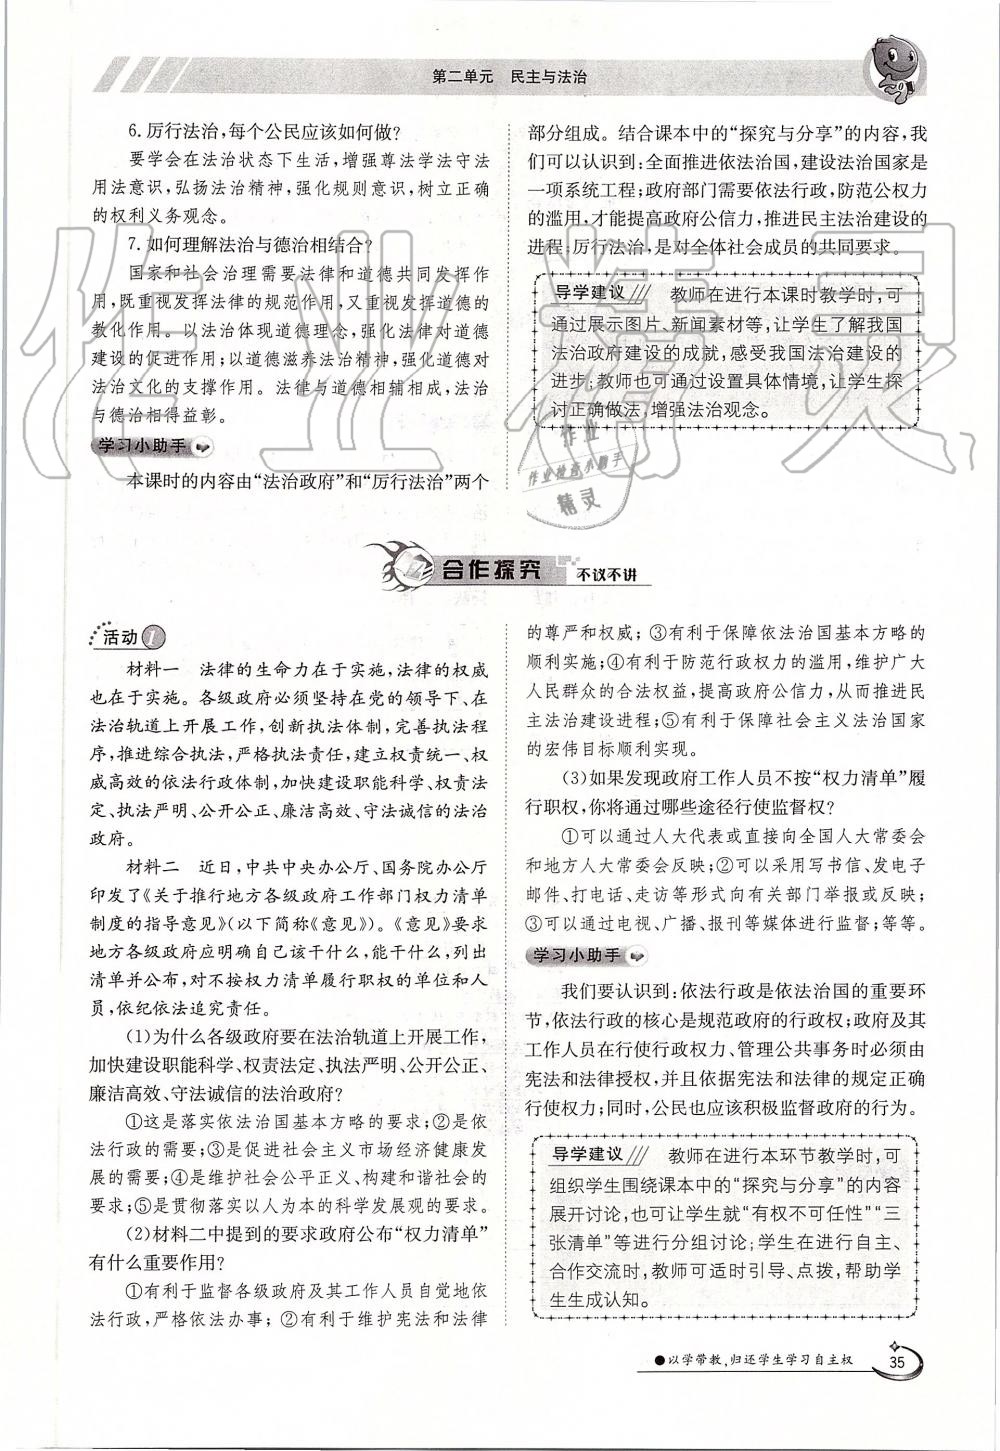 第二单元 民主与法治
6. 厉行法治,每个公民应该如何做?
要学会在法治状态下生活,增强尊法学法守法
用法意识,弘扬法治精神,强化规则意识,树立正确
的权利义务观念。
7. 如何理解法治与德治相结合?
国家和社会治理需要法律和道德共同发挥作
用,既重视发挥法律的规范作用,又重视发挥道德的
教化作用。以法治体现道德理念,强化法律对道德
建设的促进作用;以道德滋养法治精神,强化道德对
法治文化的支撑作用。法律与道德相辅相成,法治
与德治相得益彰。
学习小助手
本课时的内容由“法治政府”和“厉行法治”两个
部分组成。结合课本中的“探究与分享”的内容,我
们可以认识到:全面推进依法治国,建设法治国家是
一项系统工程;政府部门需要依法行政,防范公权力
的滥用,才能提高政府公信力,推进民主法治建设的
进程;厉行法治,是对全体社会成员的共同要求。
导学建议 教师在进行本课时教学时,可
通过展示图片、新闻素材等,让学生了解我国
法治政府建设的成就,感受我国法治建设的
进步;教师也可通过设置具体情境,让学生探
讨正确做法,增强法治观念。
作业
作业检查小助手
精灵
作业精灵
合作探究 不议不讲
活动1
材料一 法律的生命力在于实施,法律的权威
也在于实施。各级政府必须坚持在党的领导下、在
法治轨道上开展工作,创新执法体制,完善执法程
序,推进综合执法,严格执法责任,建立权责统一、权
威高效的依法行政体制,加快建设职能科学、权责法
定、执法严明、公开公正、廉洁高效、守法诚信的法治
政府。
材料二 近日,中共中央办公厅、国务院办公厅
印发了《关于推行地方各级政府工作部门权力清单
制度的指导意见》(以下简称《意见》)。《意见》要求
地方各级政府应明确自己该干什么,能干什么,列出
清单并公布,对不按权力清单履行职权的单位和人
员,依纪依法追究责任。
(1)为什么各级政府要在法治轨道上开展工作,
加快建设职能科学、权责法定、执法严明、公开公正、
廉洁高效、守法诚信的法治政府?
①这是落实依法治国基本方略的要求;②是依
法行政的需要;③是促进社会主义市场经济健康发
展的需要;④是维护社会公平正义、构建和谐社会的
要求;⑤是贯彻落实以人为本的科学发展观的要求。
(2)材料二中提到的要求政府公布“权力清单”
有什么重要作用?
①有利于监督各级政府及其工作人员自觉地依
法行政,严格依法办事;②有利于维护宪法和法律
的尊严和权威;③有利于保障依法治国基本方略的
顺利实施;④有利于防范行政权力的滥用,维护广大
人民群众的合法权益,提高政府公信力,从而推进民
主法治建设进程;⑤有利于保障社会主义法治国家
的宏伟目标顺利实现。
(3)如果发现政府工作人员不按“权力清单”履
行职权,你将通过哪些途径行使监督权?
①可以通过人大代表或直接向全国人大常委会
和地方人大常委会反映;②可以采用写书信、发电子
邮件、打电话、走访等形式向有关部门举报或反映;
③可以通过电视、广播、报刊等媒体进行监督;等等。
学习小助手
我们要认识到:依法行政是依法治国的重要环
节,依法行政的核心是规范政府的行政权;政府及其
工作人员在行使行政权力、管理公共事务时必须由
宪法和法律授权,并且依据宪法和法律的规定正确
行使权力;同时,公民也应该积极监督政府的行为。
导学建议 教师在进行本环节教学时,可
组织学生围绕课本中的“探究与分享”的内容
展开讨论,也可让学生就“有权不可任性”“三
张清单”等进行分组讨论;学生在进行自主、
合作交流时,教师可适时引导、点拨,帮助学
生生成认知。
●以学带教,归还学生学习自主权
35